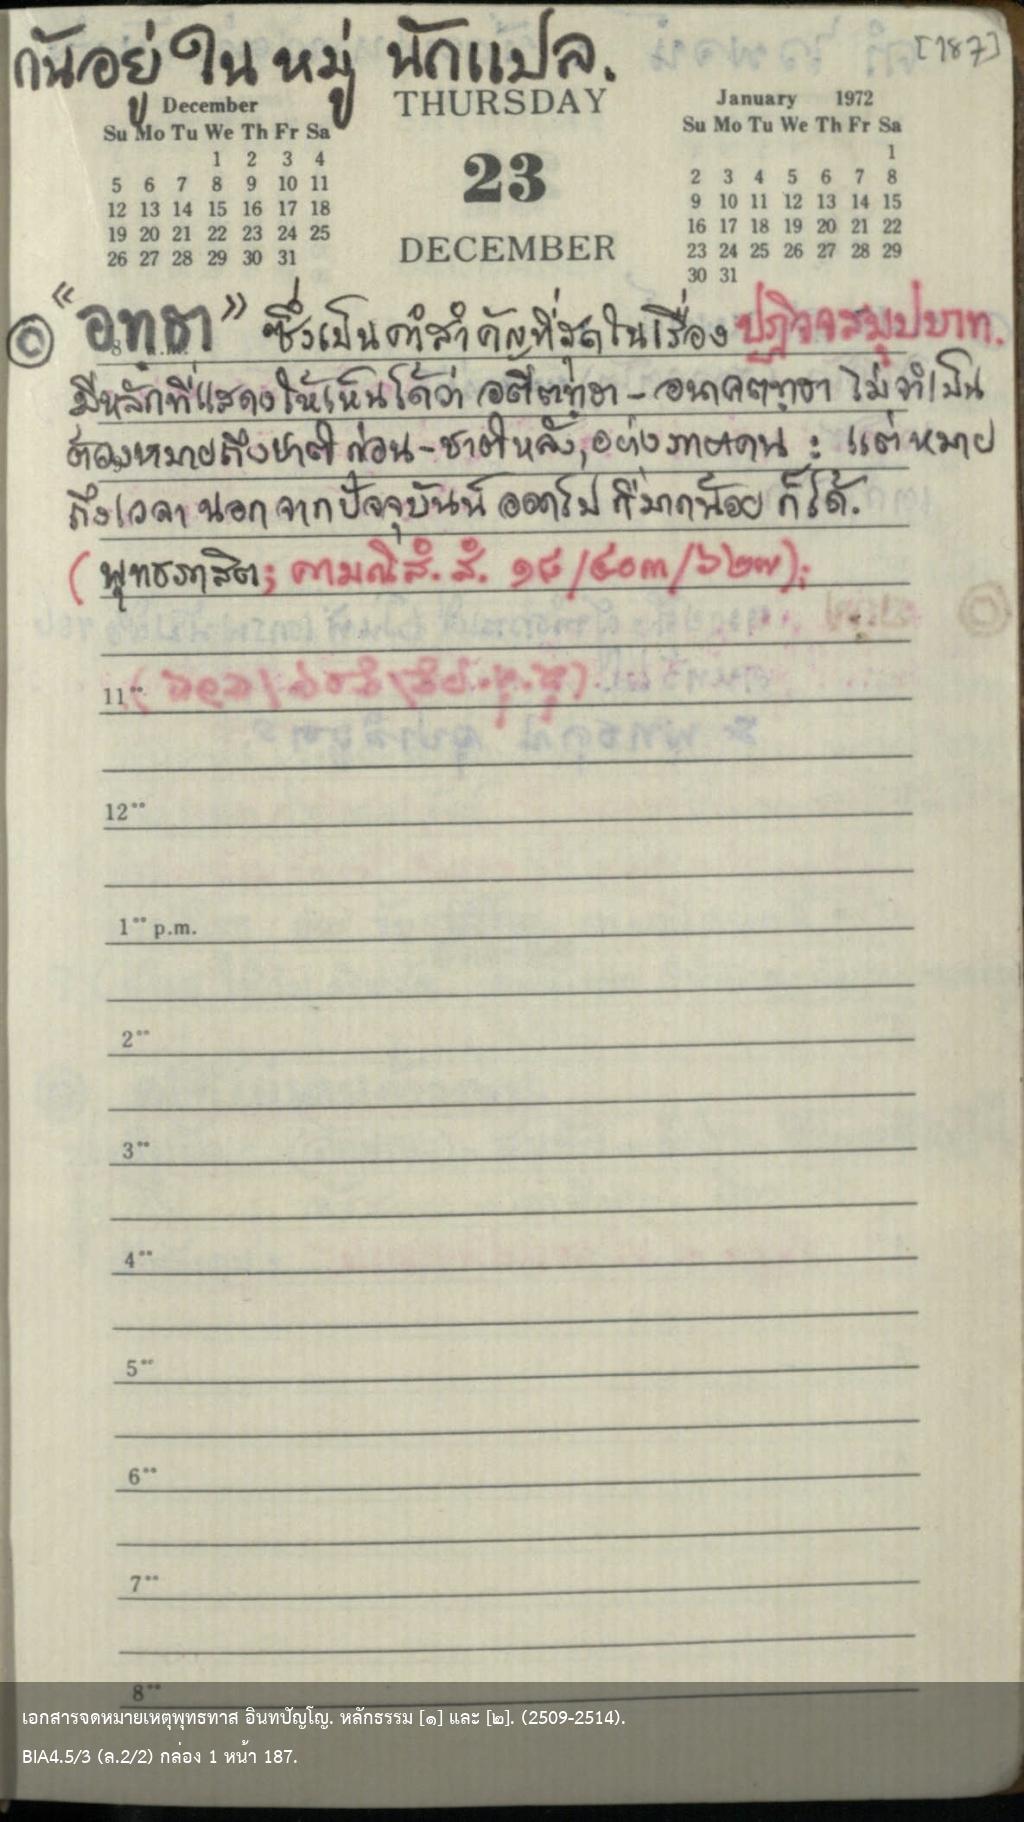 กันอยู่ ใน หมู่ นักแปล.
[187]
December
Su Mo Tu We Th Fr Sa
1 2 3 4
5 6 7 8 9 10 11
12 13 14 15 16 17 18
19 20 21 22 23 24 25
26 27 28 29 30 31
THURSDAY
23
DECEMBER
January 1972
Su Mo Tu We Th Fr Sa
1
2 3 4 5 6 7 8
9 10 11 12 13 14 15
16 17 18 19 20 21 22
23 24 25 26 27 28 29
30 31
"อทฺธา" ซึ่งเป็นคำสำคัญที่สุดในเรื่อง ปฏิจจสมุปบาท.
มีหลักที่แสดงให้เห็นได้ว่า อตีตทฺธา - อนาคตทฺธา ไม่จำเป็น
ต้องหมายถึงชาติก่อน - ชาติหลัง, อย่าง : แต่หมาย
ถึงเวลา นอกจากปัจจุบันนี้ ออกไป กี่มากน้อย ก็ได้.
(พุทธภาสิต; คามณิสํ. สํ. ๑๘/๔๐๓/๖๒๗);
11°°
12°°
1°° p.m.
2°°
3°°
4°°
5°°
6°°
7°°
8°°
เอกสารจดหมายเหตุพุทธทาส อินทปัญโญ. หลักธรรม [๑] และ [๒]. (2509-2514).
BIA4.5/3 (ล.2/2) กล่อง 1 หน้า 187.